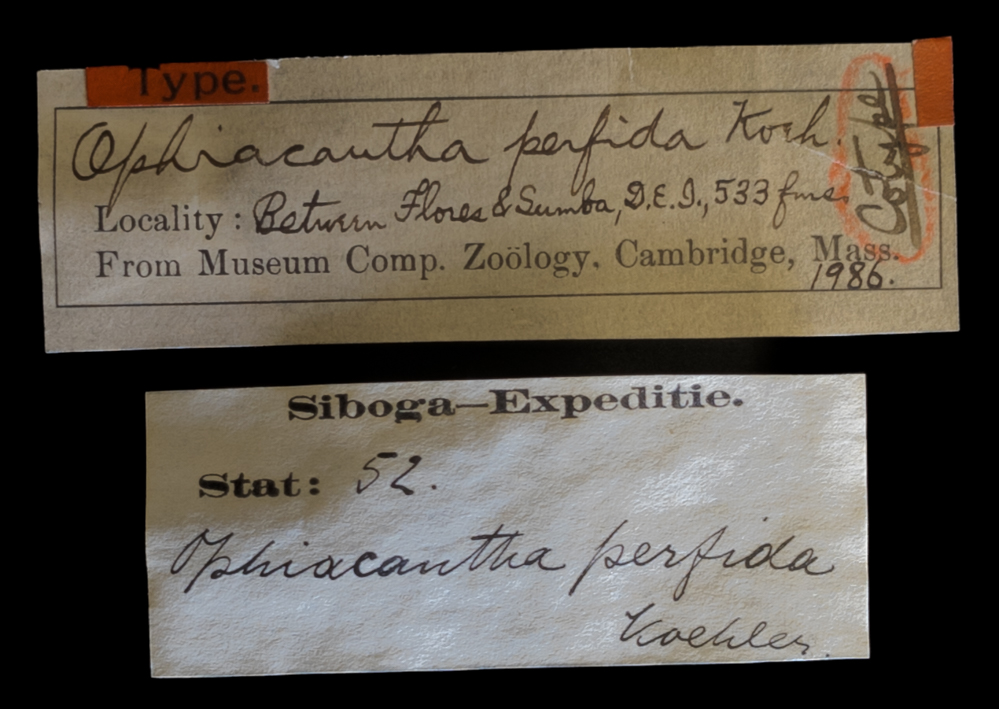 Type.
Ophiacantha perfida Koeh.
CoType
Locality: Between Flores & Sumba, D.E.I., 533 fms.
From Museum Comp. Zoölogy. Cambridge, Mass.
1986.
Siboga—Expeditie.
Stat: 52.
Ophiacantha perfida
Koehler.